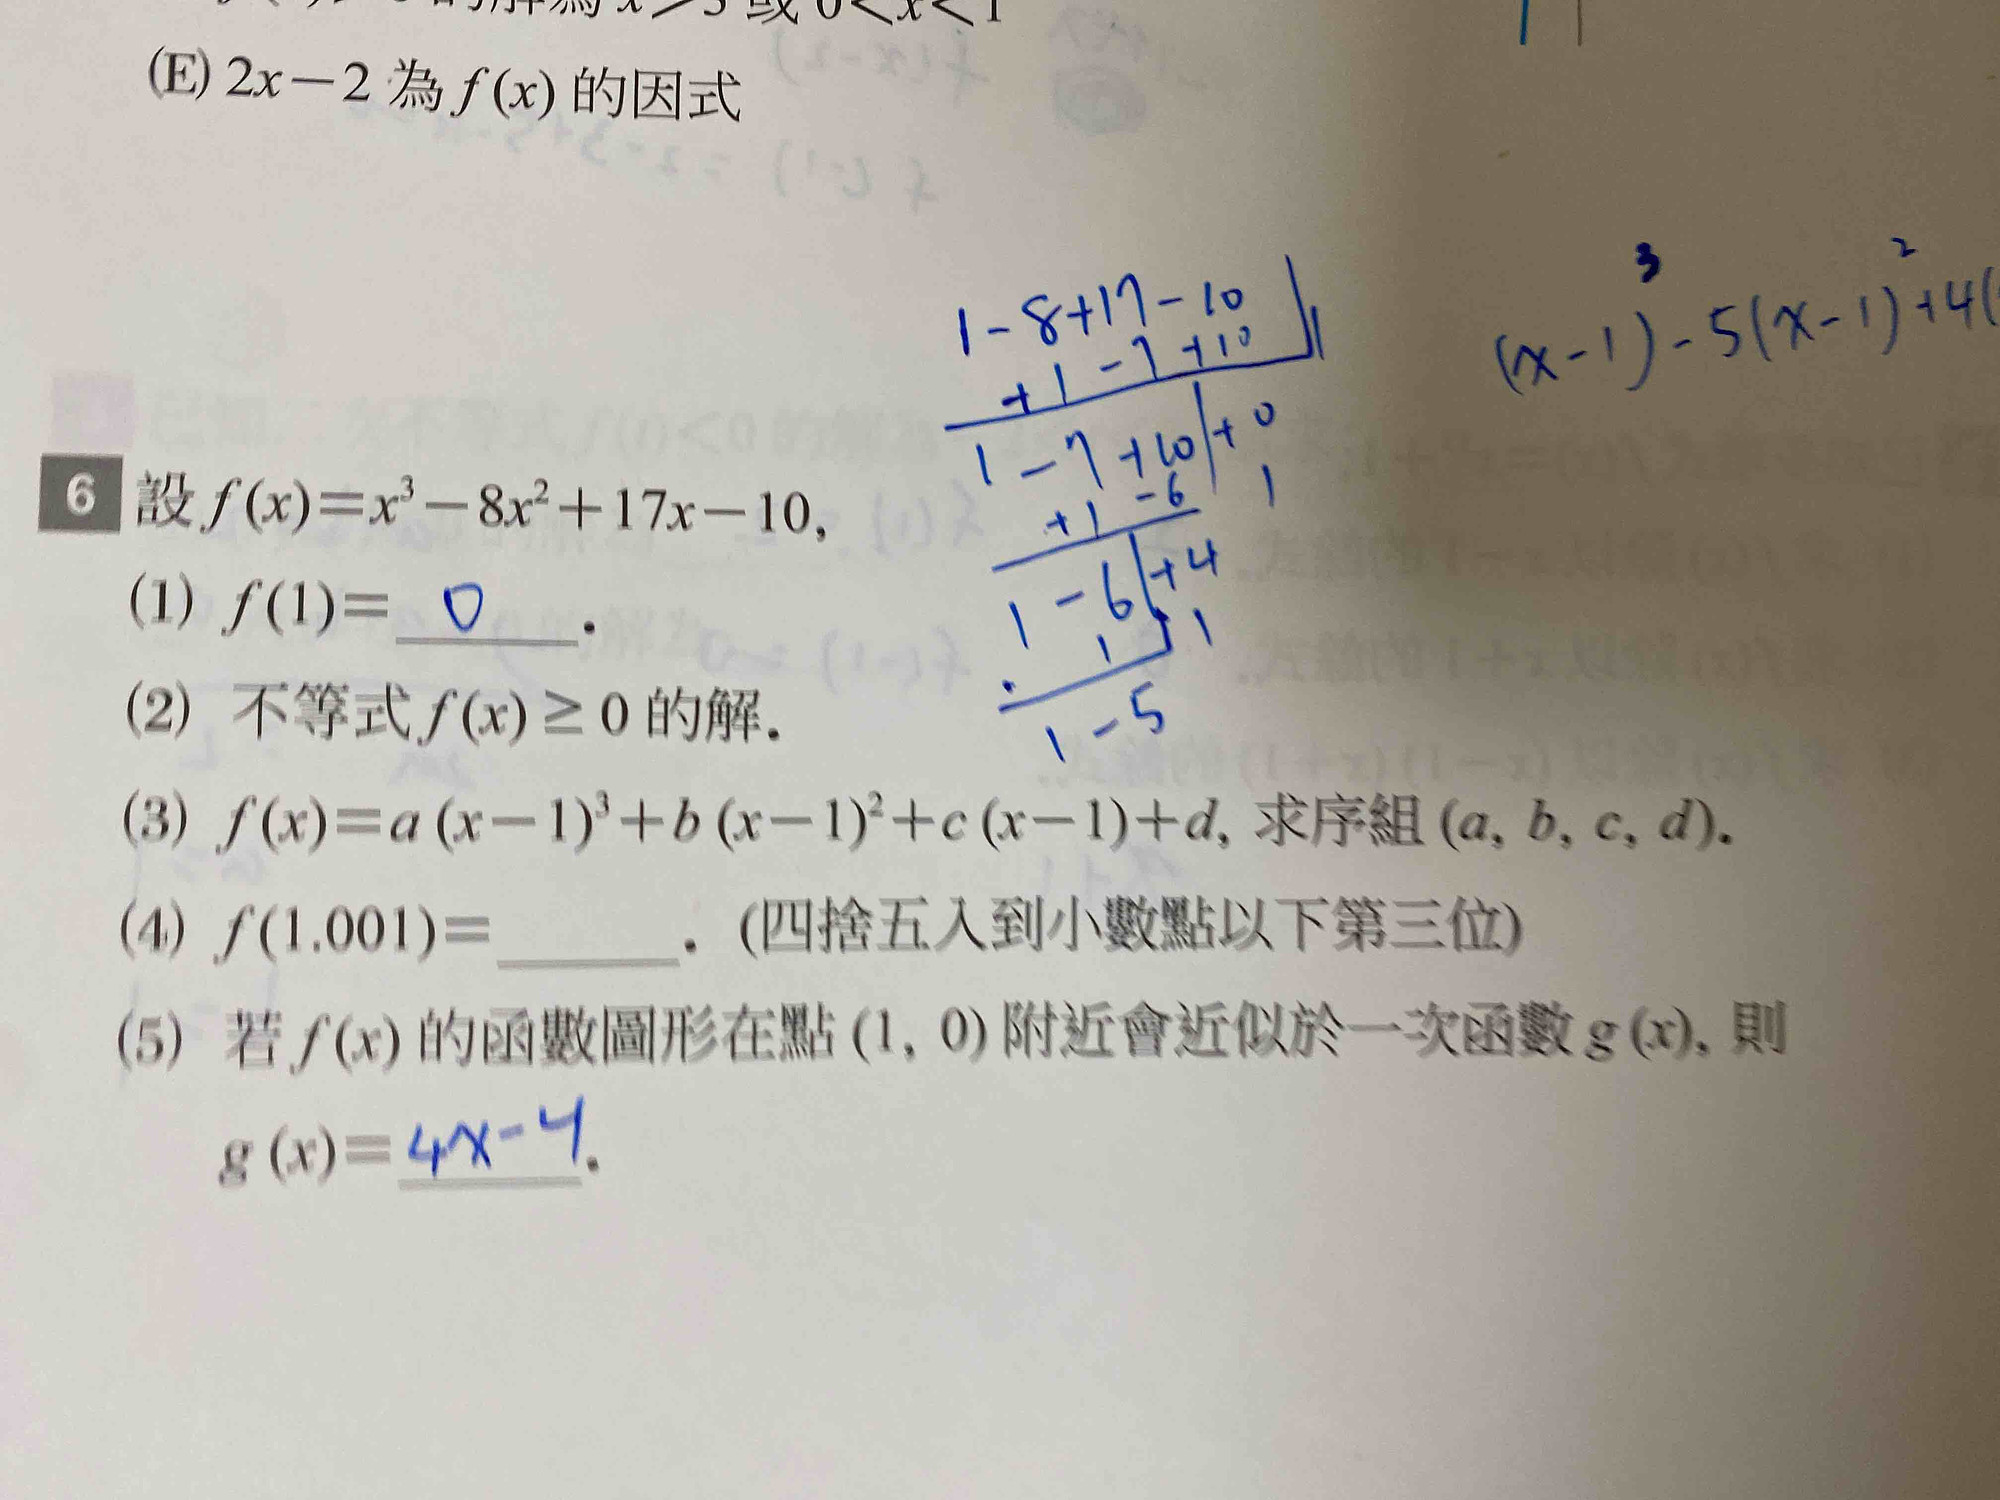 的解為 x>5 或 0<x<1
(E) 2x－2 為 f(x) 的因式
1-8+17-10 | 1
+1-7+10
1-7+10 | +0
+1-6 1
1-6 | +4
1 1
1-5
(x-1)³-5(x-1)²+4(
6 設 f(x)＝x³－8x²＋17x－10,
(1) f(1)＝ 0 .
(2) 不等式 f(x) ≥ 0 的解.
(3) f(x)＝a (x－1)³＋b (x－1)²＋c (x－1)＋d, 求序組 (a, b, c, d).
(4) f(1.001)＝______. (四捨五入到小數點以下第三位)
(5) 若 f(x) 的函數圖形在點 (1, 0) 附近會近似於一次函數 g (x), 則
g (x)＝ 4x-4 .